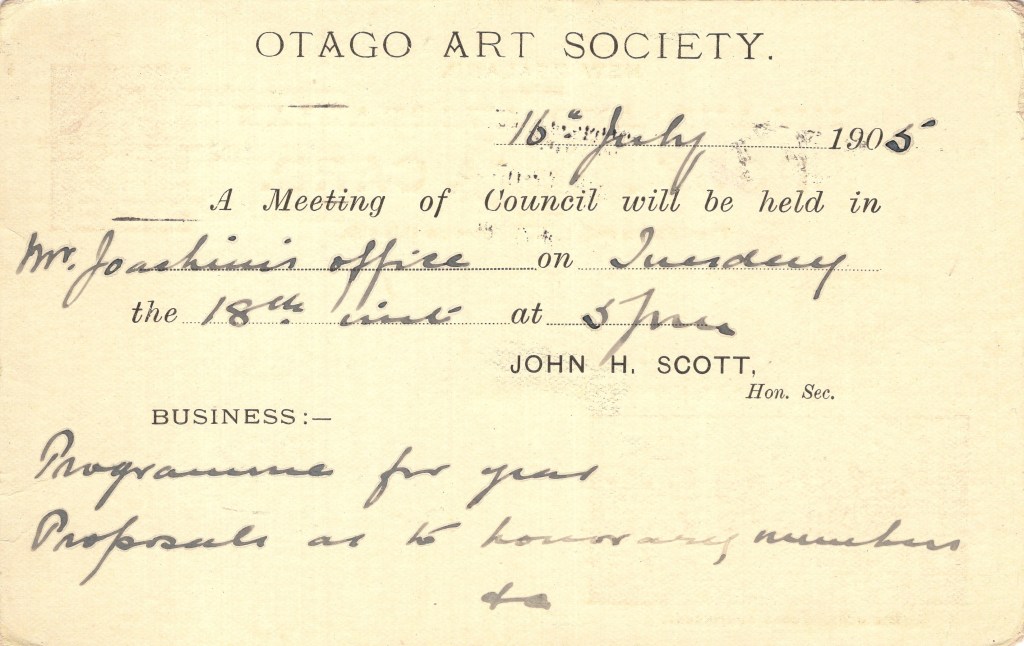 OTAGO ART SOCIETY.
16th July 1905
A Meeting of Council will be held in
Mr. Joachim's office on Tuesday
the 18th inst at 5 pm
JOHN H. SCOTT,
Hon. Sec.
BUSINESS:—
Programme for year
Proposals as to honorary members
&c